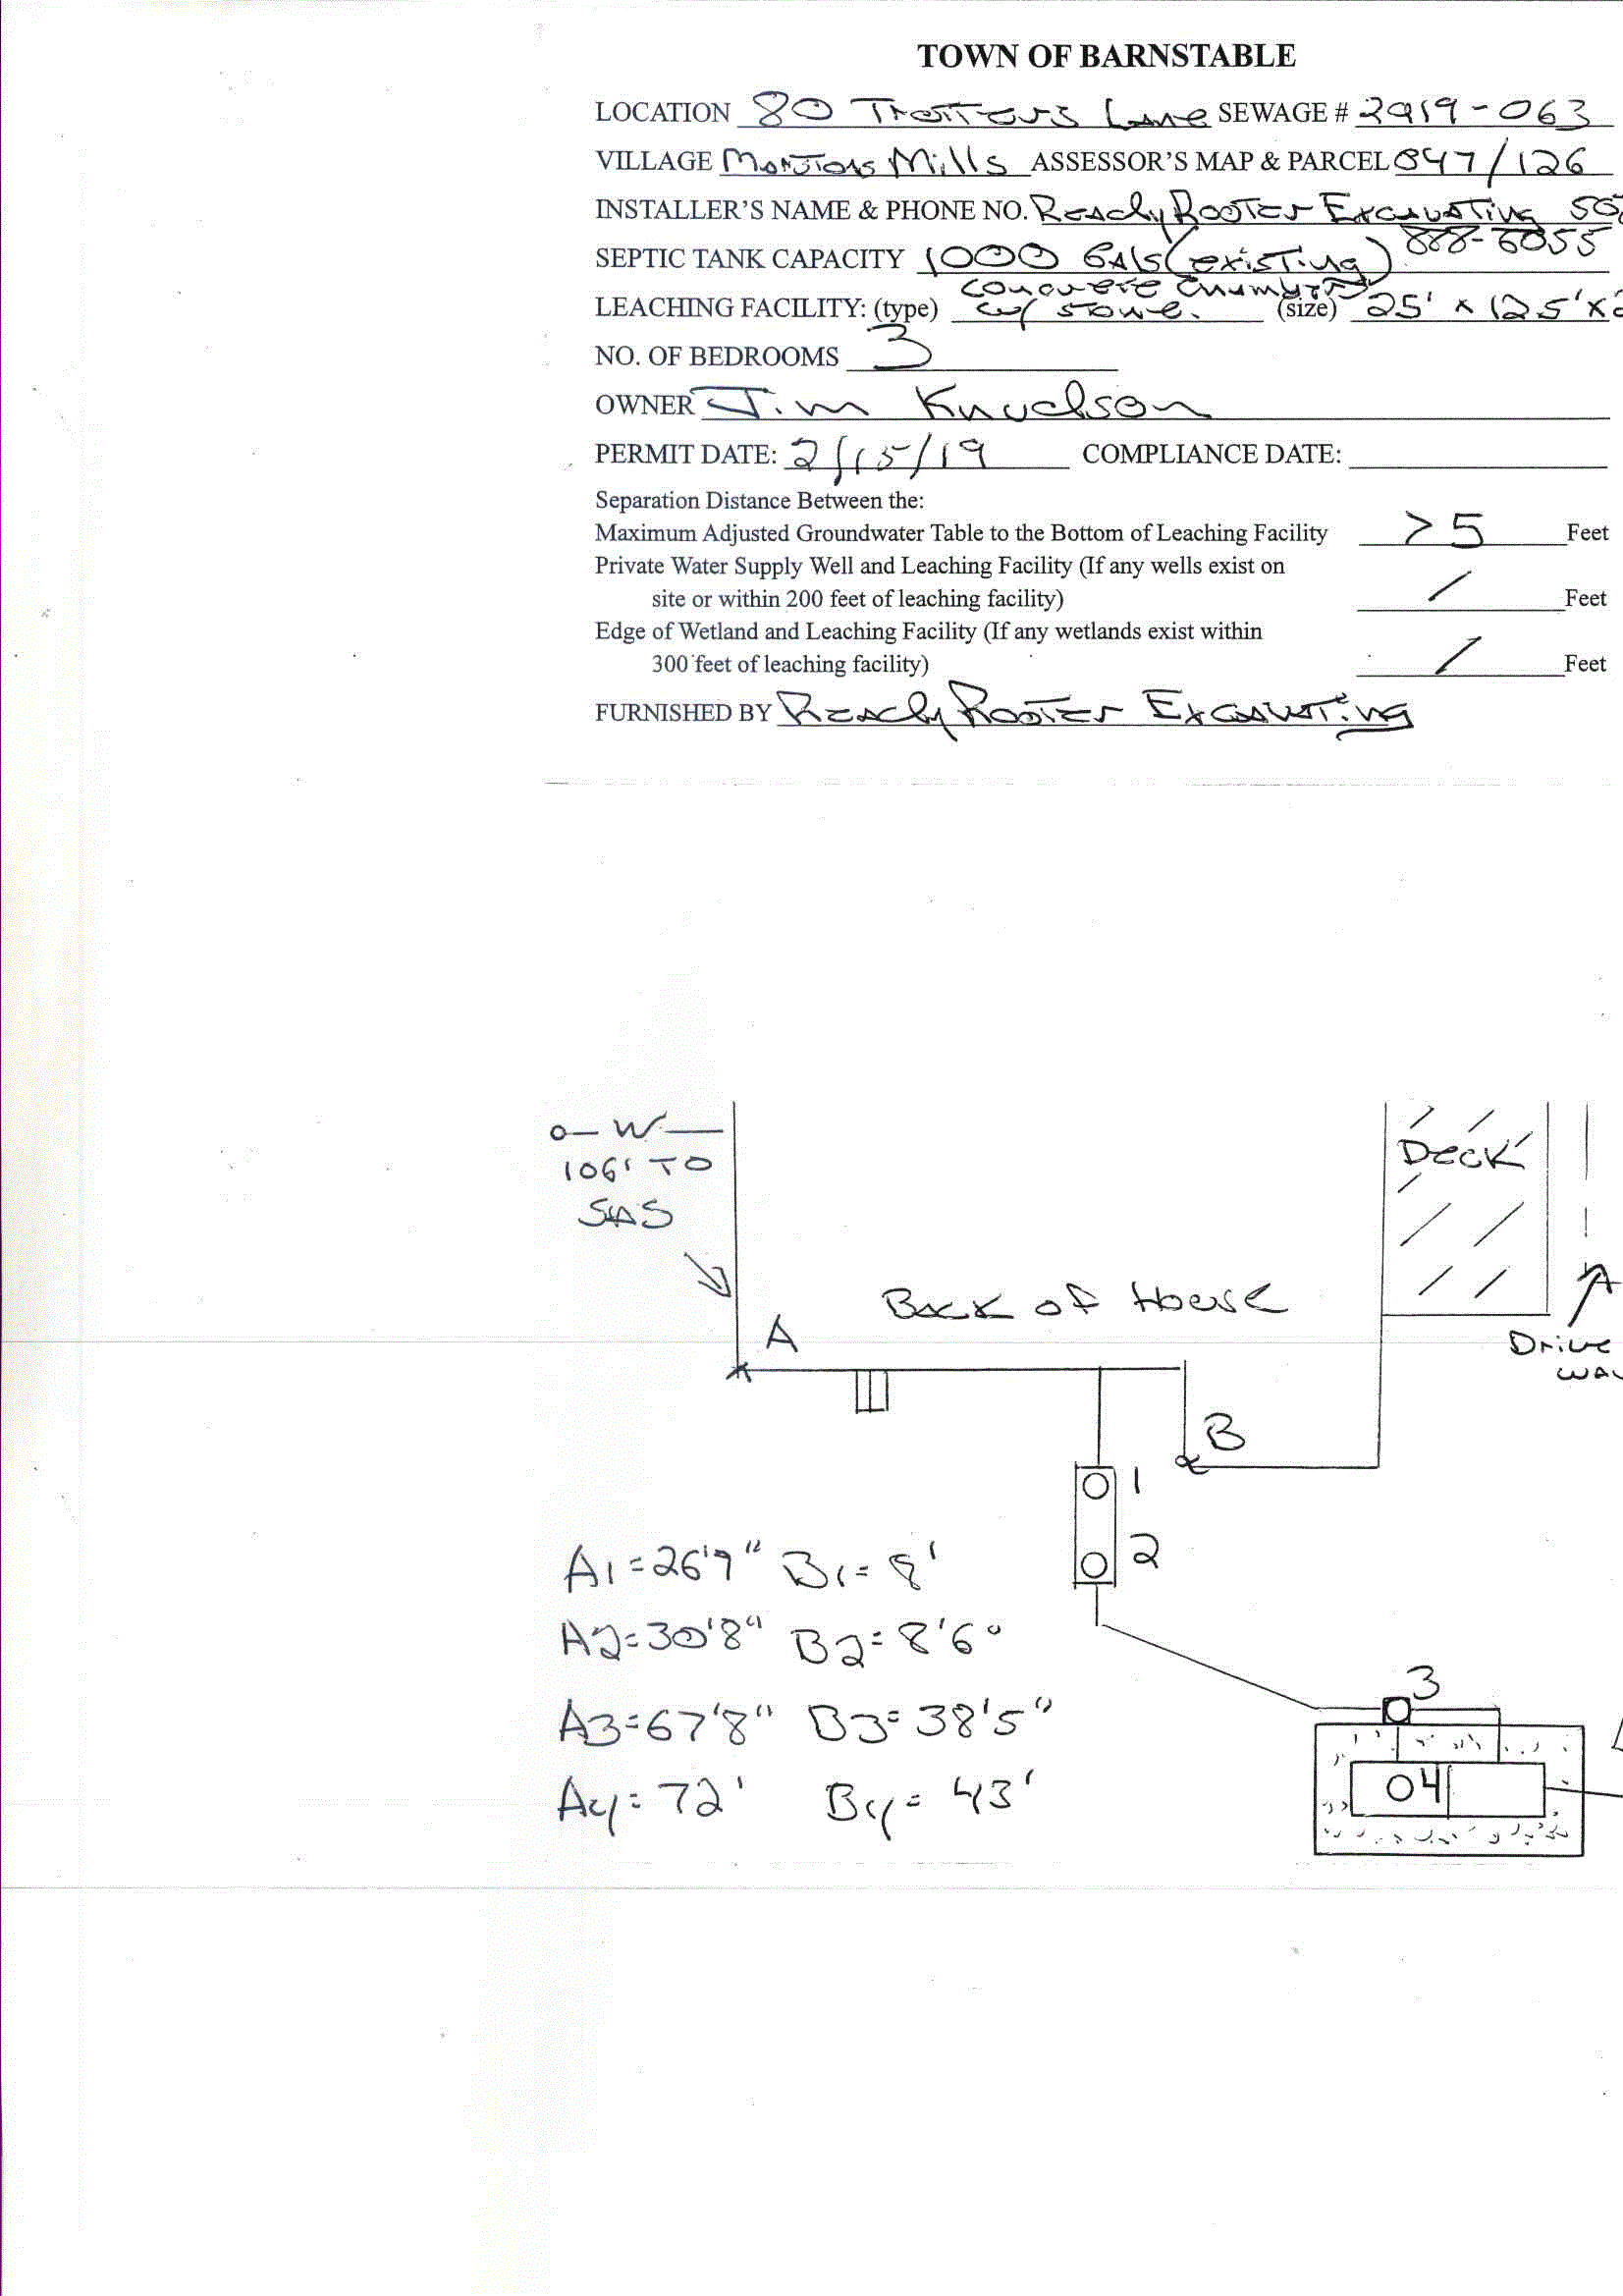 TOWN OF BARNSTABLE
LOCATION 80 Trotters Lane SEWAGE # 2019-063
VILLAGE Marstons Mills ASSESSOR'S MAP & PARCEL 047/126
INSTALLER'S NAME & PHONE NO. Ready Rooter Excavating 508
888-6055
SEPTIC TANK CAPACITY 1000 Gals (existing)
concrete chambers
LEACHING FACILITY: (type) w/ stone. (size) 25' x 12.5' x 2
NO. OF BEDROOMS 3
OWNER Jim Knudson
PERMIT DATE: 2/15/19 COMPLIANCE DATE:
Separation Distance Between the:
Maximum Adjusted Groundwater Table to the Bottom of Leaching Facility >5 Feet
Private Water Supply Well and Leaching Facility (If any wells exist on
site or within 200 feet of leaching facility) / Feet
Edge of Wetland and Leaching Facility (If any wetlands exist within
300 feet of leaching facility) / Feet
FURNISHED BY Ready Rooter Excavating
o-W-
106' TO
SAS
Deck
Back of House
A
Drive
way
B
1
2
A1=26'9" B1=8'
A2=30'8" B2=8'6"
A3=67'8" B3=38'5"
A4=72' B4=43'
3
4